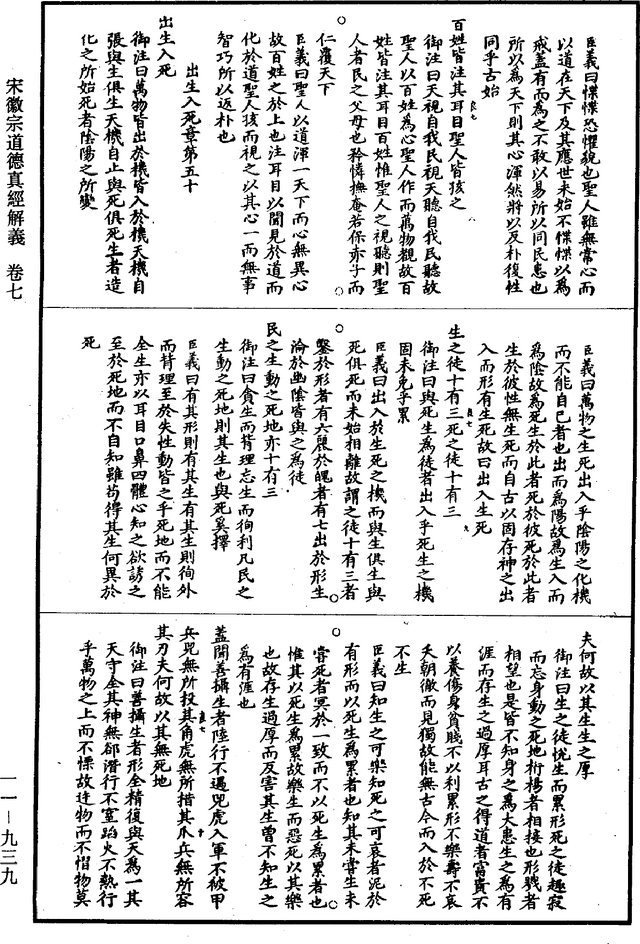 臣義曰惵惵恐懼貌也聖人雖無常心而
以道在天下及其應世未始不惵惵以為
戒蓋有而為之不敢以易所以同民患也
所以為天下則其心渾然將以反朴復性
同乎古始
百姓皆注其耳目聖人皆孩之
御注曰天視自我民視天聽自我民聽故
聖人以百姓為心聖人作而萬物覩故百
姓皆注其耳目百姓惟聖人之視聽則聖
人者民之父母也矜憐撫奄若保赤子而
仁覆天下
臣義曰聖人以道渾一天下而心無異心
故百姓之於上也注耳目以聞見於道而
化於道聖人孩而視之以其心一而無事
智巧所以返朴也
出生入死章第五十
出生入死
御注曰萬物皆出於機皆入於機天機自
張與生俱生天機自止與死俱死生者造
化之所始死者陰陽之所變
臣義曰萬物之生死出入乎陰陽之化機
而不能自已者也出而為陽故為生入而
為陰故為死生於此者死於彼死於此者
生於彼性無生死而自古以固存神之出
入而形有生死故曰出入生死
生之徒十有三死之徒十有三
御注曰與死生為徒者出入乎死生之機
固未免乎累
臣義曰出入於生死之機而與生俱生與
死俱死而未始相離故謂之徒十有三者
鑿於形者有六㒹於魄者有七出於形生
淪於幽陰皆與之為徒
民之生動之死地亦十有三
御注曰貪生而背理忘生而徇利凡民之
生動之死地則其生也與死奚擇
臣義曰有其形則有其生有其生則徇外
而背理至於失性動皆之乎死地而不能
全生亦以耳目口鼻四體心知之欲誘之
至於死地而不自知雖苟得其生何異於
死
夫何故以其生生之厚
御注曰生之徒悅生而累形死之徒趣寂
而忘身動之死地桁楊者相接也形戮者
相望也是皆不知身之為大患生之為有
涯而存生之過厚耳古之得道者富貴不
以養傷身貧賤不以利累形不樂壽不哀
夭朝徹而見獨故能無古今而入於不死
不生
臣義曰知生之可樂知死之可哀者泥於
有形而以死生為累者也知其未嘗生未
嘗死者冥於一致而不以死生為累者也
惟其以死生為累故樂生而惡死以其樂
也故存生過厚而反害其生曽不知生之
為有涯也
蓋聞善攝生者陸行不遇兕虎入軍不被甲
兵兕無所投其角虎無所措其爪兵無所容
其刃夫何故以其無死地
御注曰善攝生者形全精復與天為一其
天守全其神無郤潛行不窒蹈火不熱行
乎萬物之上而不慄故迕物而不慴物莫
宋徽宗道德真經解義　卷七
一一－九三九